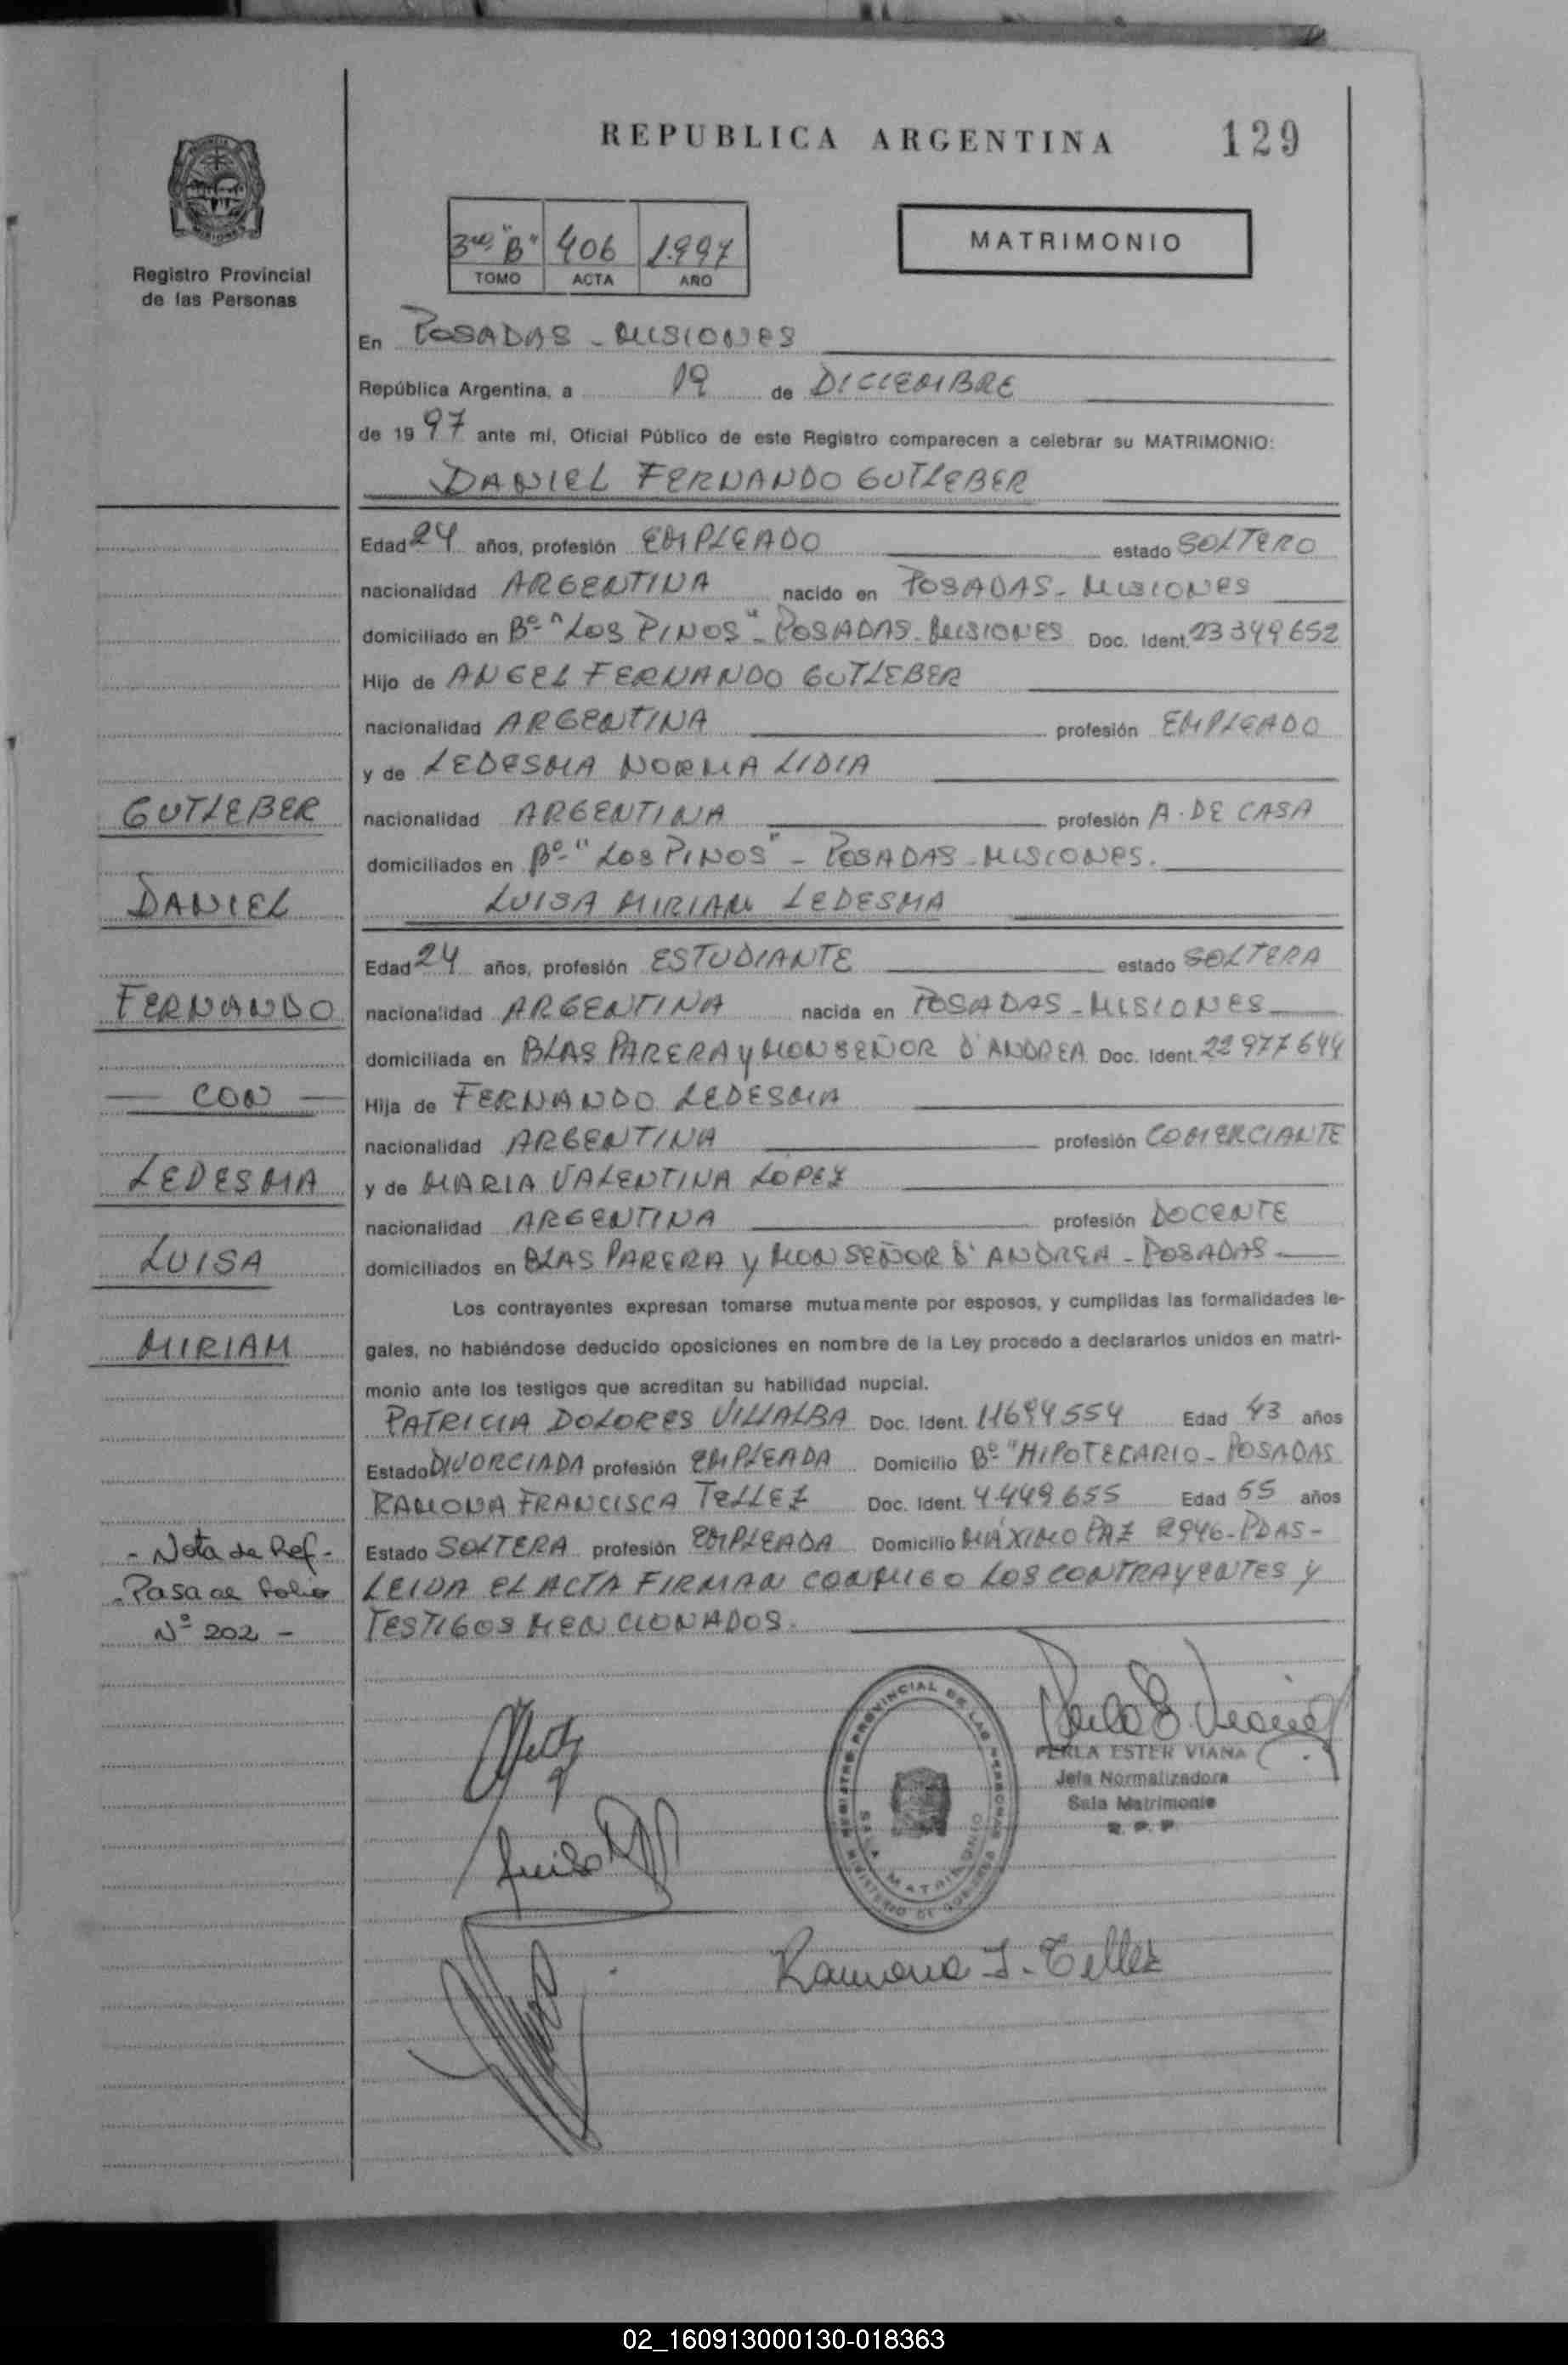 REPUBLICA ARGENTINA
129
Registro Provincial
de las Personas
3ro "B" 406 1.997
TOMO ACTA AÑO
MATRIMONIO
En POSADAS - MISIONES
República Argentina, a 19 de DICIEMBRE
de 19 97 ante mí, Oficial Público de este Registro comparecen a celebrar su MATRIMONIO:
DANIEL FERNANDO GUTLEBER
Edad 24 años, profesión EMPLEADO estado SOLTERO
nacionalidad ARGENTINA nacido en POSADAS - MISIONES
domiciliado en Bº- "LOS PINOS" - POSADAS - MISIONES Doc. Ident. 23349652
Hijo de ANGEL FERNANDO GUTLEBER
nacionalidad ARGENTINA profesión EMPLEADO
y de LEDESMA NORMA LIDIA
nacionalidad ARGENTINA profesión A. DE CASA
domiciliados en Bº- "LOS PINOS" - POSADAS - MISIONES.
LUISA MIRIAM LEDESMA
Edad 24 años, profesión ESTUDIANTE estado SOLTERA
nacionalidad ARGENTINA nacida en POSADAS - MISIONES
domiciliada en BLAS PARERA y MONSEÑOR D'ANDREA Doc. Ident. 22977644
Hija de FERNANDO LEDESMA
nacionalidad ARGENTINA profesión COMERCIANTE
y de MARIA VALENTINA LOPEZ
nacionalidad ARGENTINA profesión DOCENTE
domiciliados en BLAS PARERA y MONSEÑOR D'ANDREA - POSADAS
Los contrayentes expresan tomarse mutuamente por esposos, y cumplidas las formalidades le-
gales, no habiéndose deducido oposiciones en nombre de la Ley procedo a declararlos unidos en matri-
monio ante los testigos que acreditan su habilidad nupcial.
PATRICIA DOLORES VILLALBA Doc. Ident. 11694554 Edad 43 años
Estado DIVORCIADA profesión EMPLEADA Domicilio Bº- "HIPOTECARIO - POSADAS
RAMONA FRANCISCA TELLEZ Doc. Ident. 4.449655 Edad 55 años
Estado SOLTERA profesión EMPLEADA Domicilio MÁXIMO PAZ 2946 - PDAS -
LEIDA EL ACTA FIRMAN CONMIGO LOS CONTRAYENTES y
TESTIGOS MENCIONADOS.
GUTLEBER
DANIEL
FERNANDO
CON
LEDESMA
LUISA
MIRIAM
- Nota de Ref -
- Pasa al folio
Nº 202 -
REGISTRO PROVINCIAL DE LAS PERSONAS
SALA MATRIMONIO
MINISTERIO DE GOBIERNO
PERLA ESTER VIANA
Jefa Normalizadora
Sala Matrimonio
R. P. P.
Luisa
Ramona F. Tellez
02_160913000130-018363